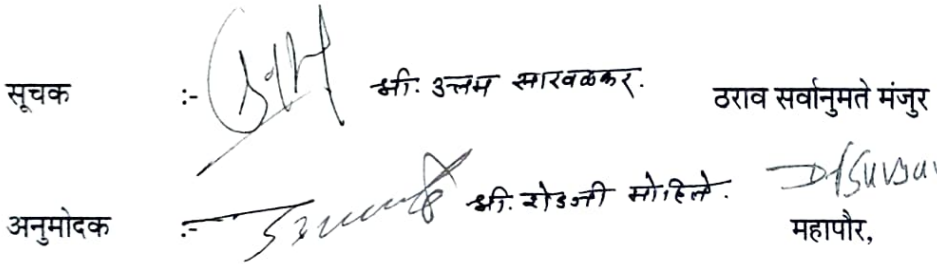 सूचक :- श्री. उत्तम साखळकर. ठराव सर्वानुमते मंजुर
अनुमोदक :- श्री. मोहिते.
महापौर,